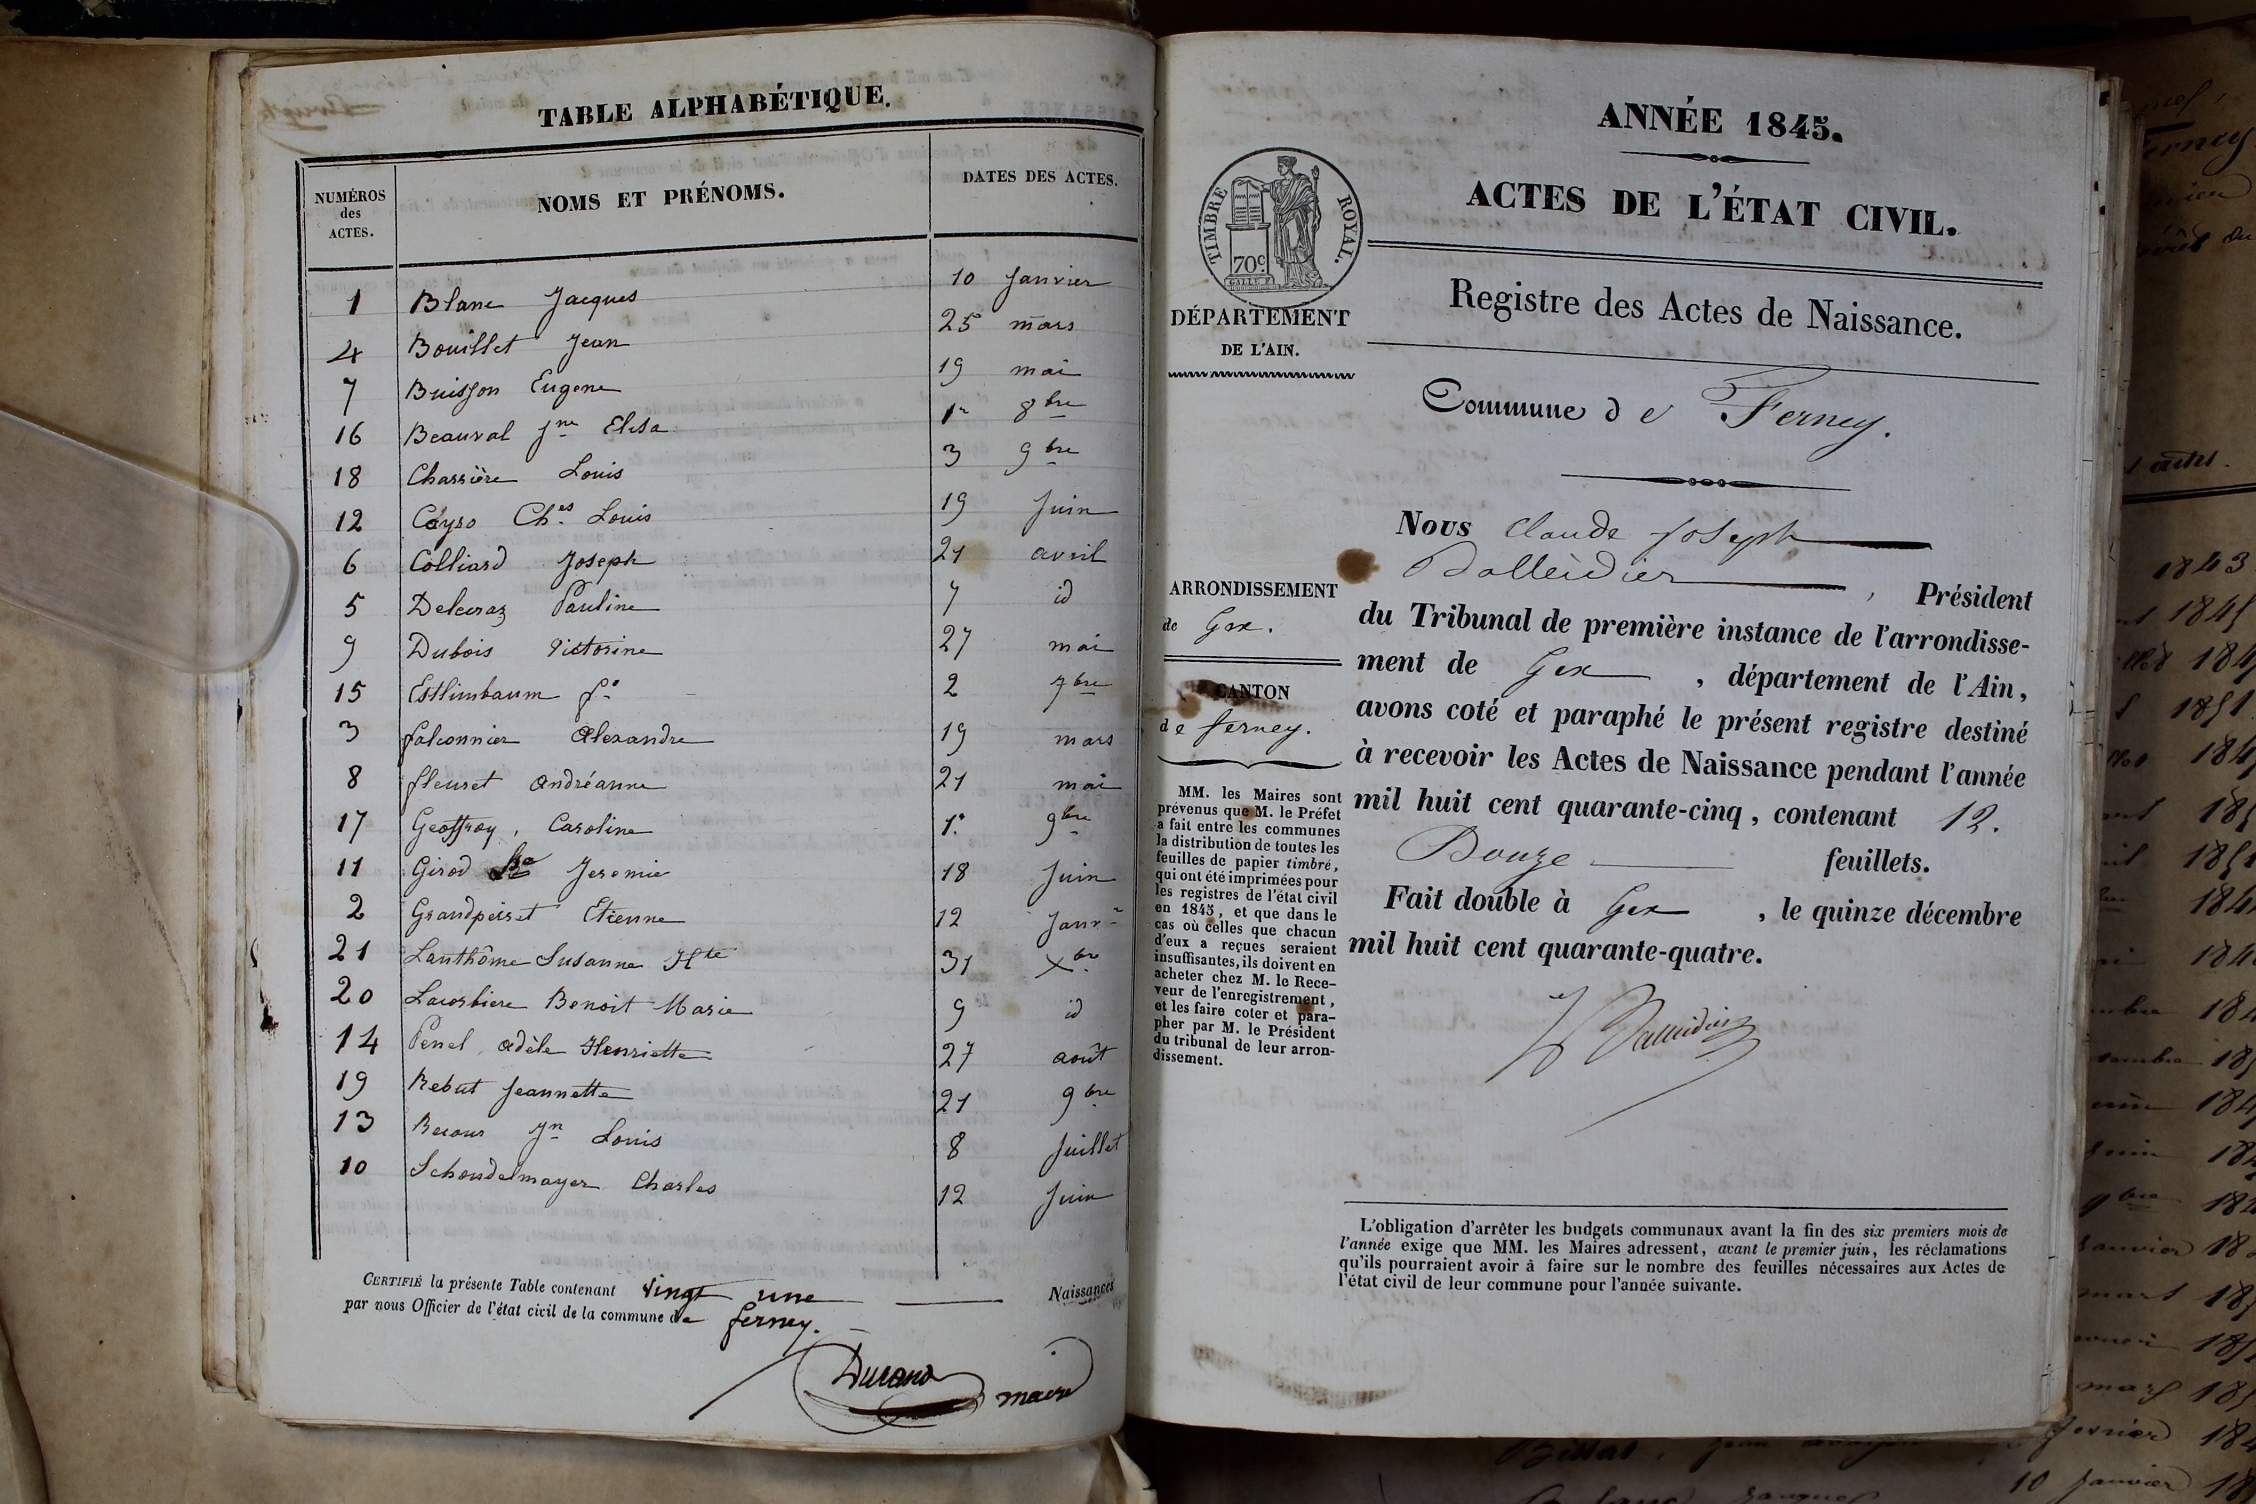 TABLE ALPHABÉTIQUE.
NUMÉROS des ACTES. NOMS ET PRÉNOMS. DATES DES ACTES.
1 Blanc Jacques 10 Janvier
4 Bouillet Jean 25 mars
7 Buisson Eugene 19 mai
16 Beauval Jne Elisa 1r 8bre
18 Charrière Louis 3 9bre
12 Cayro Ches Louis 19 Juin
6 Colliard Joseph 21 avril
5 Delecraz Pauline 7 id
9 Dubois Victorine 27 mai
15 Estlimbaum fs 2 7bre
3 falconnier Alexandre 19 mars
8 fleuret Andréanne 21 mai
17 Geoffroy, Caroline 1r 9bre
11 Girod Jeremie 18 Juin
2 Grandperret Etienne 12 Janvr
21 Lanthôme Susanne Hte 31 Xbre
20 Lacorbiere Benoit Marie 9 id
14 Penel Adèle Henriette 27 août
19 Rebut Jeannette 21 9bre
13 Recour Jn Louis 8 Juillet
10 Schoudelmayer Charles 12 Juin
CERTIFIÉ la présente Table contenant vingt une Naissances
par nous Officier de l'état civil de la commune de ferney.
Durand maire
ANNÉE 1845.
ACTES DE L'ÉTAT CIVIL.
TIMBRE ROYAL.
70c.
DÉPARTEMENT
DE L'AIN.
Registre des Actes de Naissance.
Commune de Ferney.
ARRONDISSEMENT
de Gex.
CANTON
de ferney.
MM. les Maires sont
prévenus que M. le Préfet
a fait entre les communes
la distribution de toutes les
feuilles de papier timbré,
qui ont été imprimées pour
les registres de l'état civil
en 1845, et que dans le
cas où celles que chacun
d'eux a reçues seraient
insuffisantes, ils doivent en
acheter chez M. le Rece-
veur de l'enregistrement,
et les faire coter et para-
pher par M. le Président
du tribunal de leur arron-
dissement.
Nous Claude Joseph
Balleidier, Président
du Tribunal de première instance de l'arrondisse-
ment de Gex, département de l'Ain,
avons coté et paraphé le présent registre destiné
à recevoir les Actes de Naissance pendant l'année
mil huit cent quarante-cinq, contenant 12.
Douze feuillets.
Fait double à Gex, le quinze décembre
mil huit cent quarante-quatre.
L'obligation d'arrêter les budgets communaux avant la fin des six premiers mois de
l'année exige que MM. les Maires adressent, avant le premier juin, les réclamations
qu'ils pourraient avoir à faire sur le nombre des feuilles nécessaires aux Actes de
l'état civil de leur commune pour l'année suivante.
10 Janvier